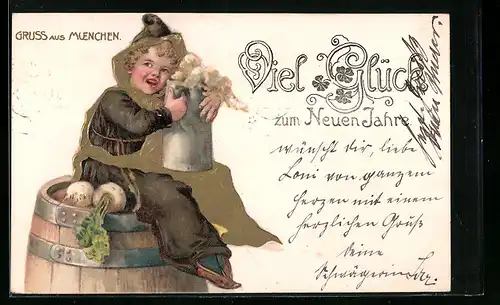 GRUSS AUS MUENCHEN.
Viel Glück
zum Neuen Jahre
wünscht dir, liebe
Loni von ganzem
Herzen mit einem
herzlichen Gruße
deine
Schwägerin